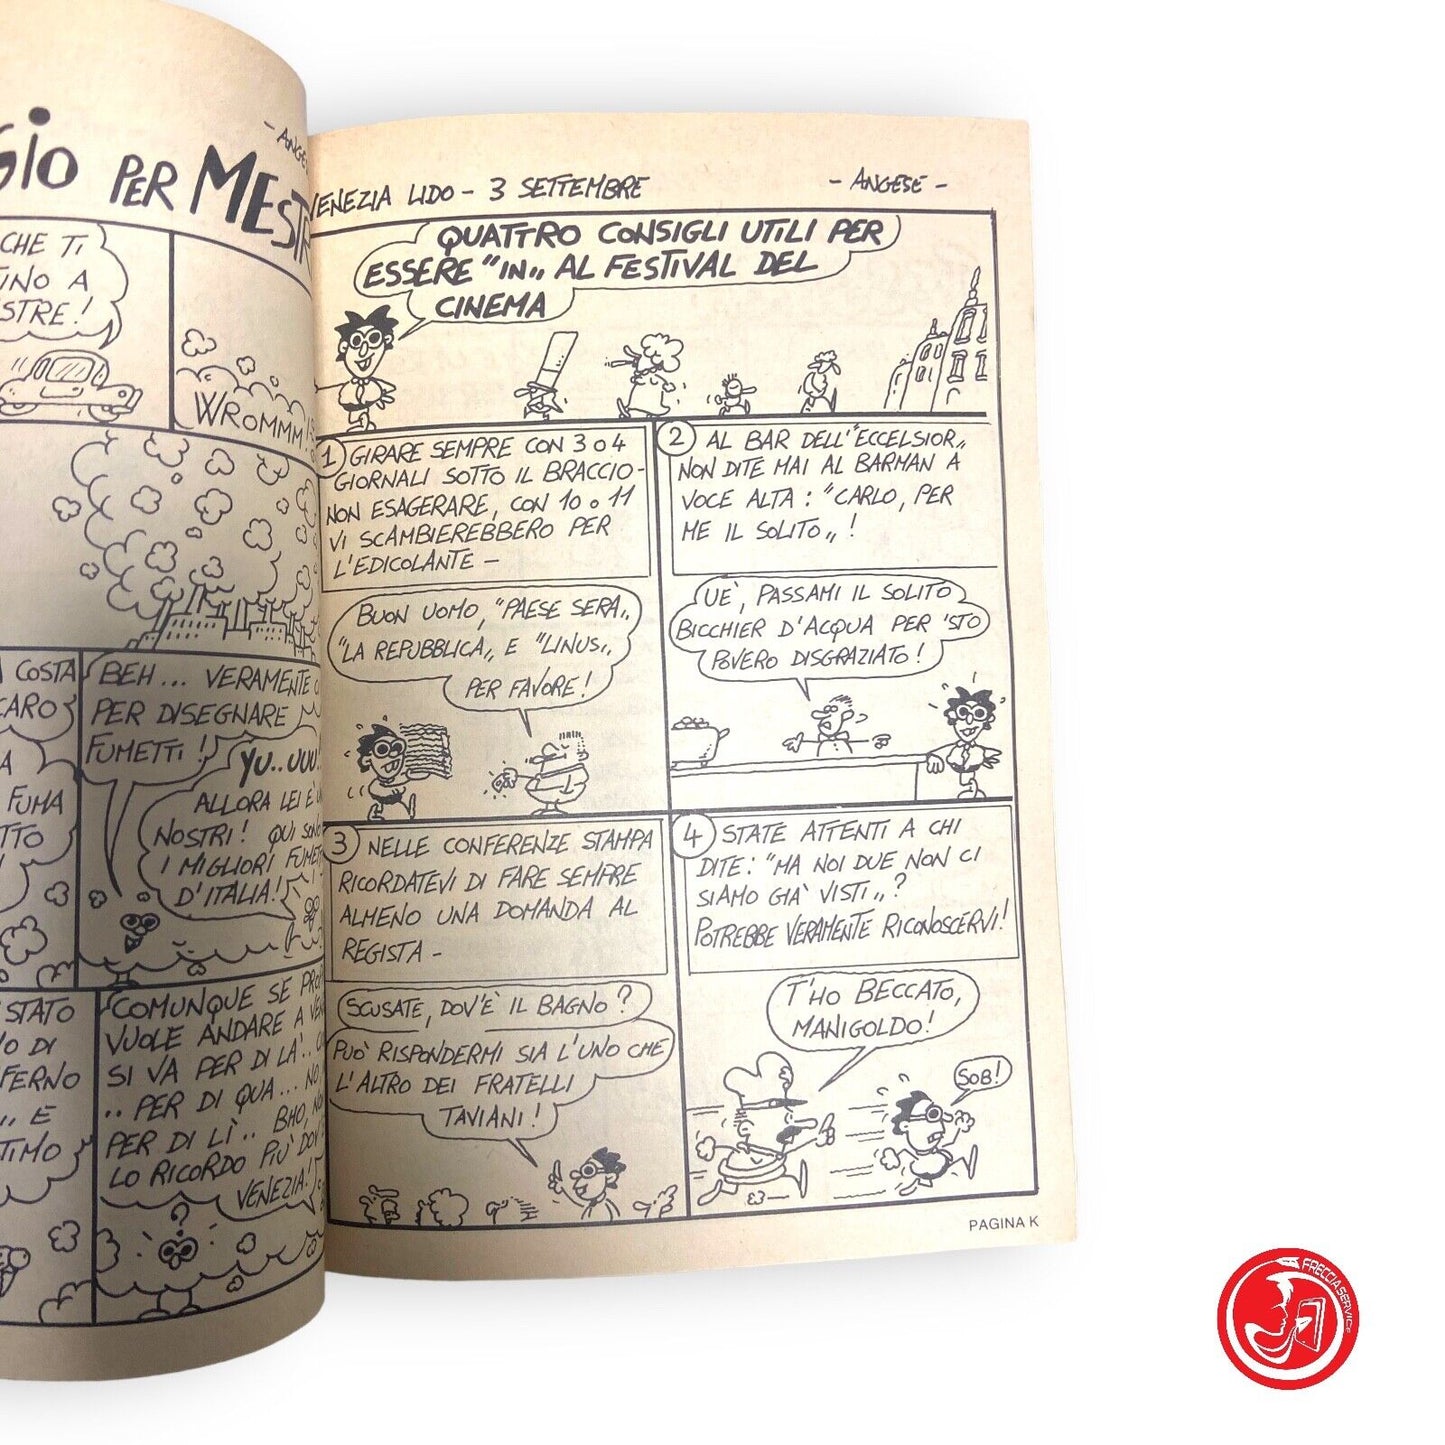 GIO PER MESTR
- ANGE
CHE TI
INO A
STRE!
WROMMM
COSTA
CARO
A
FUMA
TTO
BEH... VERAMENTE
PER DISEGNARE
FUMETTI!
YU..UUU!
ALLORA LEI È
NOSTRI! QUI SONO
I MIGLIORI FUMETTI
D'ITALIA!
STATO
O DI
FERNO
,, E
TIMO
COMUNQUE SE PROP
VUOLE ANDARE A VEN
SI VA PER DI LÀ..
.. PER DI QUA... NO,
PER DI LÌ.. BHO, NON
LO RICORDO PIÙ DOV'
VENEZIA!
?
VENEZIA LIDO - 3 SETTEMBRE
- ANGESE -
QUATTRO CONSIGLI UTILI PER
ESSERE "IN,, AL FESTIVAL DEL
CINEMA
1 GIRARE SEMPRE CON 3 O 4
GIORNALI SOTTO IL BRACCIO-
NON ESAGERARE, CON 10 O 11
VI SCAMBIEREBBERO PER
L'EDICOLANTE -
BUON UOMO, "PAESE SERA,,
"LA REPUBBLICA,, E "LINUS,,
PER FAVORE!
2 AL BAR DELL'"ECCELSIOR,,
NON DITE MAI AL BARMAN A
VOCE ALTA: "CARLO, PER
ME IL SOLITO,,!
UÈ, PASSAMI IL SOLITO
BICCHIER D'ACQUA PER 'STO
POVERO DISGRAZIATO!
3 NELLE CONFERENZE STAMPA
RICORDATEVI DI FARE SEMPRE
ALMENO UNA DOMANDA AL
REGISTA -
SCUSATE, DOV'È IL BAGNO?
PUÒ RISPONDERMI SIA L'UNO CHE
L'ALTRO DEI FRATELLI
TAVIANI!
4 STATE ATTENTI A CHI
DITE: "MA NOI DUE NON CI
SIAMO GIÀ VISTI,,?
POTREBBE VERAMENTE RICONOSCERVI!
T'HO BECCATO,
MANIGOLDO!
SOB!
PAGINA K
FRECCIASERVICE